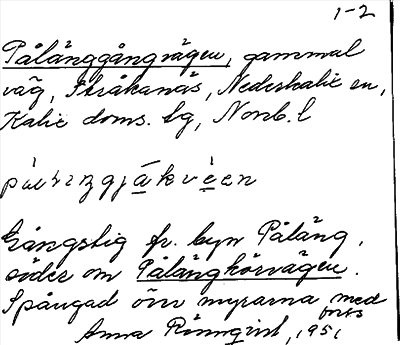 1-2
Pålänggångvägen, gammal
väg, Stråkanäs, Nederkalix sn,
Kalix doms. bg, Norrb. l
Gångstig fr. byn Påläng,
söder om Pålängkörvägen.
Spångad över myrarna med
Anna Rönnqvist, 1951